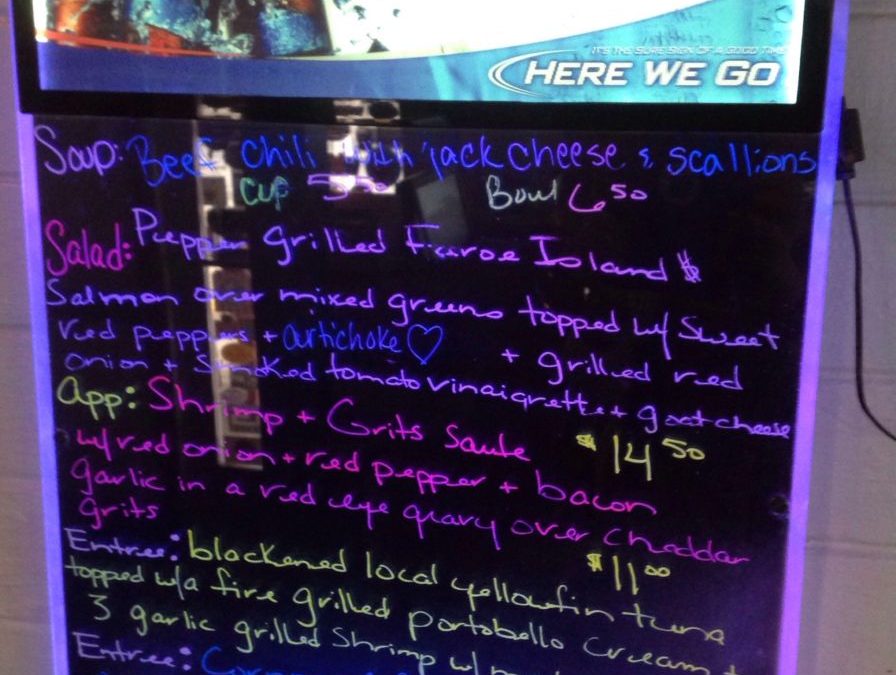 IT'S THE SURE SIGN OF A GOOD TIME
HERE WE GO
Soup: Beef chili with jack cheese & scallions
cup 5.50 Bowl 6.50
Salad: Pepper grilled Faroe Island $
Salmon over mixed greens topped w/ Sweet
red peppers + artichoke ♡ + grilled red
onion + Smoked tomato vinaigrette + goat cheese
App: Shrimp + Grits Saute $14 50
w/ red onion + red pepper + bacon
garlic in a red eye gravy over Cheddar
grits $11 00
Entree: blackened local yellowfin tuna
topped w/a fire grilled portobello cream +
3 garlic grilled Shrimp w/
Entree: